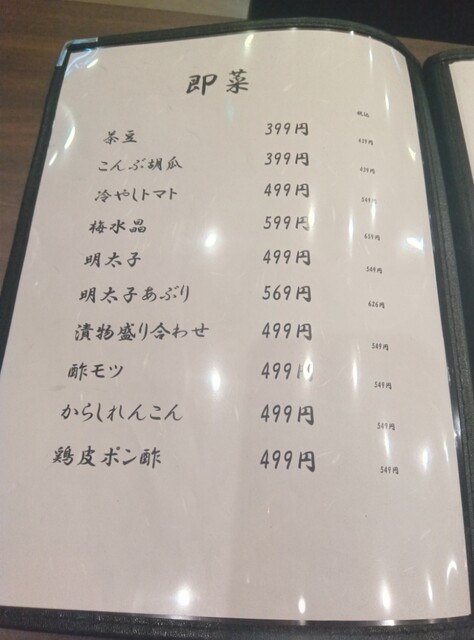 即菜
税込
茶豆 399円 439円
こんぶ胡瓜 399円 439円
冷やしトマト 499円 549円
梅水晶 599円 659円
明太子 499円 549円
明太子あぶり 569円 626円
漬物盛り合わせ 499円 549円
酢モツ 499円 549円
からしれんこん 499円 549円
鶏皮ポン酢 499円 549円